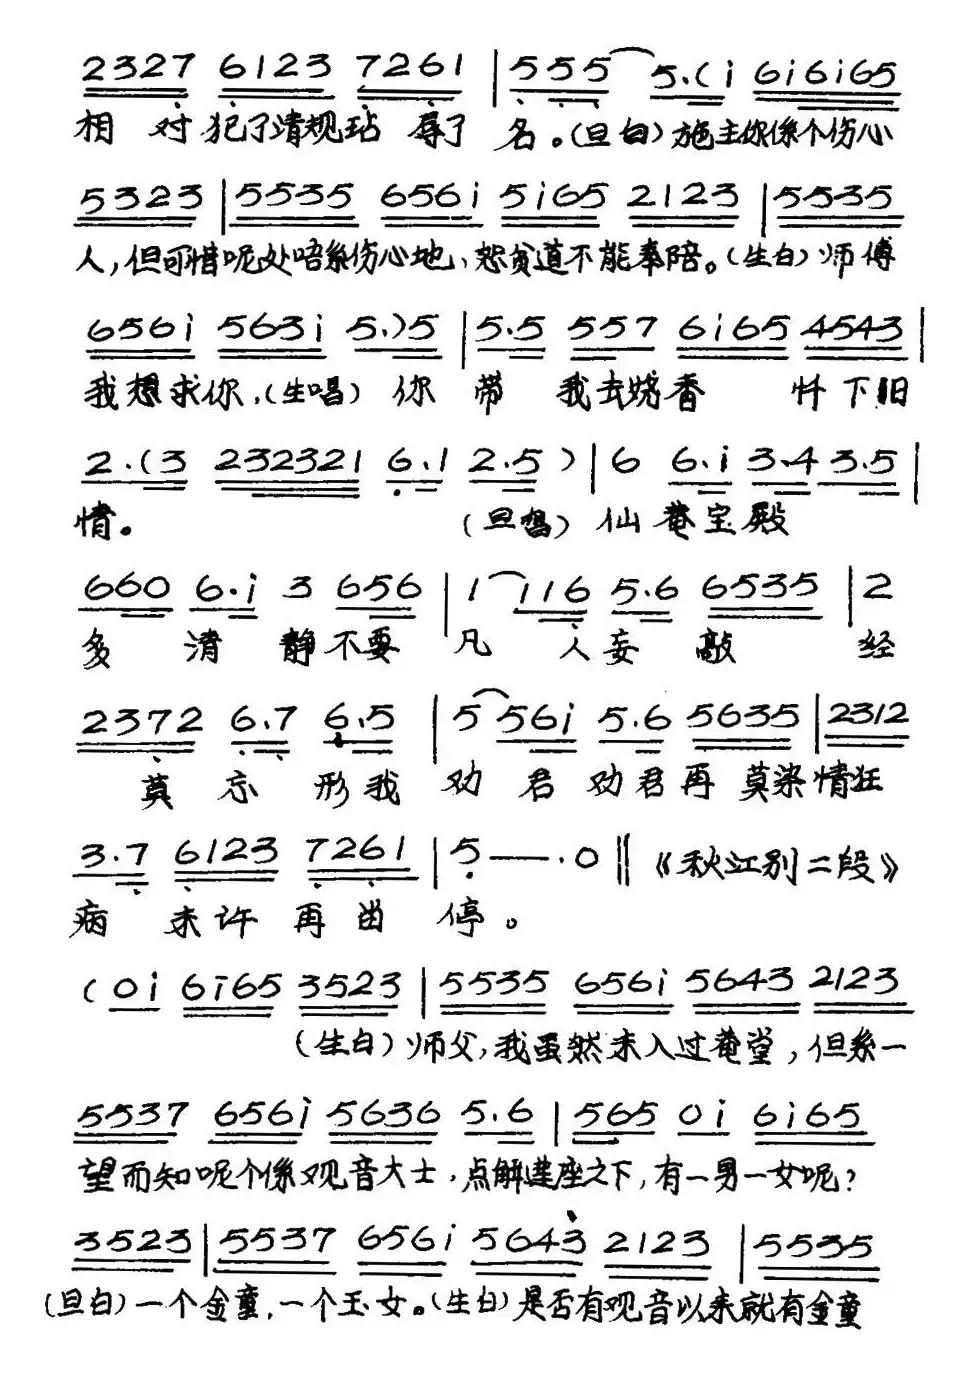 2327 6123 7261 | 555 5.(i 6i6i65
相 对 犯了清规玷 辱了 名。(旦白)施主你係个伤心
5323 | 5535 656i 5i65 2123 | 5535
人,但可惜呢处唔系伤心地、恕贫道不能奉陪。(生白)师傅
656i 563i 5.)5 | 5.5 557 6i65 4543 |
我想求你,(生唱) 你 带 我去烧香 忏下旧
2.(3 232321 6.1 2.5) | 6 6.i 3.4 3.5 |
情。 (旦唱) 仙 菴宝殿
660 6.i 3 656 | 1 i116 5.6 6535 | 2
多 清 静不要 凡 人妄 敲 经
2372 6.7 6.5 | 5 56i 5.6 5635 | 2312
莫 忘 形我 劝 君 劝君再 莫染情狂
3.7 6123 7261 | 5 — . 0 ‖ 《秋江别二段》
病 未许 再由 停。
(0i 6i65 3523 | 5535 656i 5643 2123
(生白)师父,我虽然未入过菴堂,但系一
5537 656i 5636 5.6 | 565 0i 6i65
望而知呢个係观音大士,点解莲座之下,有一男一女呢?
3523 | 5537 656i 5643 2123 | 5535
(旦白)一个金童,一个玉女。(生白)是否有观音以来就有金童